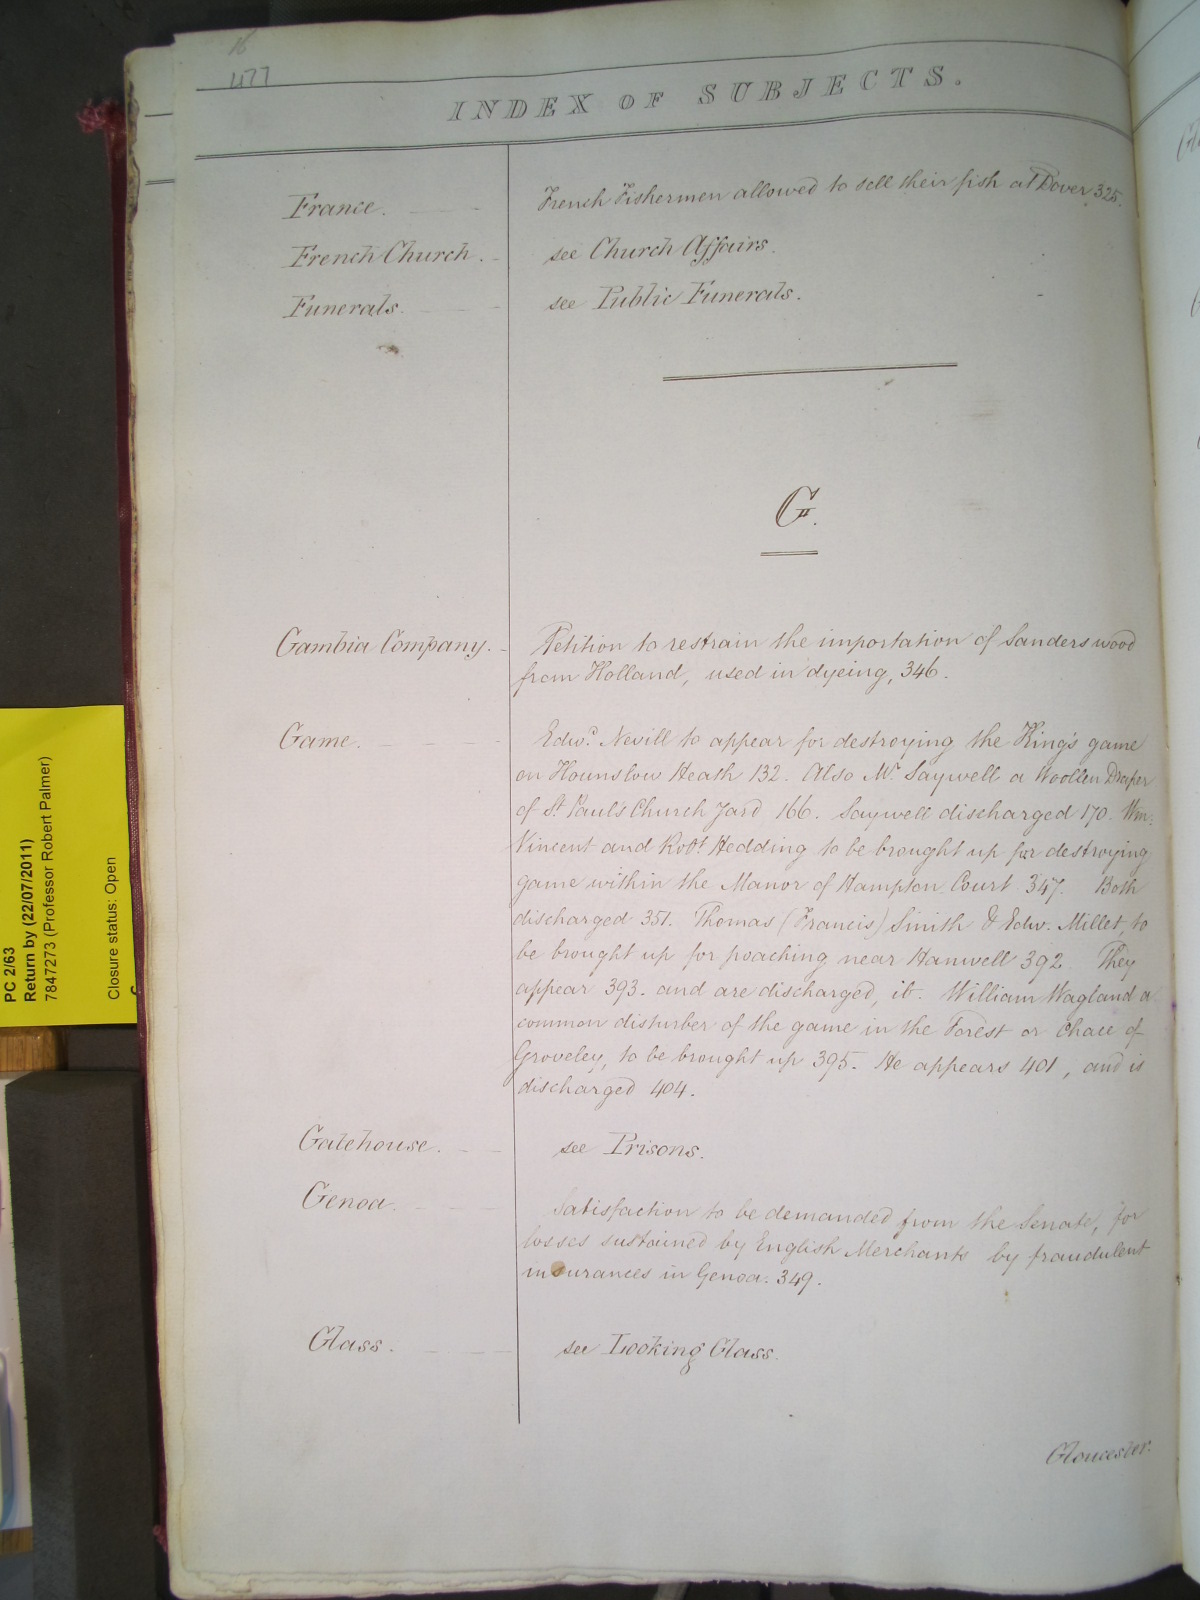 16
477
INDEX OF SUBJECTS.
France. French Fishermen allowed to sell their fish at Dover, 325.
French Church. see Church Affairs.
Funerals. see Public Funerals.
G.
Gambia Company. Petition to restrain the importation of Sanders wood
from Holland, used in dyeing, 346.
Game. Edwd. Nevill to appear for destroying the King's game
on Hounslow Heath 132. Also Mr. Saywell a Woollen Draper
of St. Paul's Church Yard 166. Saywell discharged 170. Wm:
Vincent and Robt. Hedding to be brought up for destroying
game within the Manor of Hampton Court 347. Both
discharged 351. Thomas (Francis) Smith & Edw. Millet, to
be brought up for poaching near Hanwell 392. They
appear 393. and are discharged, ib. William Wagland a
common disturber of the game in the Forest or Chace of
Groveley, to be brought up 395. He appears 401, and is
discharged 404.
Gatehouse. see Prisons.
Genoa. Satisfaction to be demanded from the Senate, for
losses sustained by English Merchants by fraudulent
insurances in Genoa. 349.
Glass. see Looking Glass.
Gloucester.
PC 2/63
Return by (22/07/2011)
7847273 (Professor Robert Palmer)
Closure status: Open